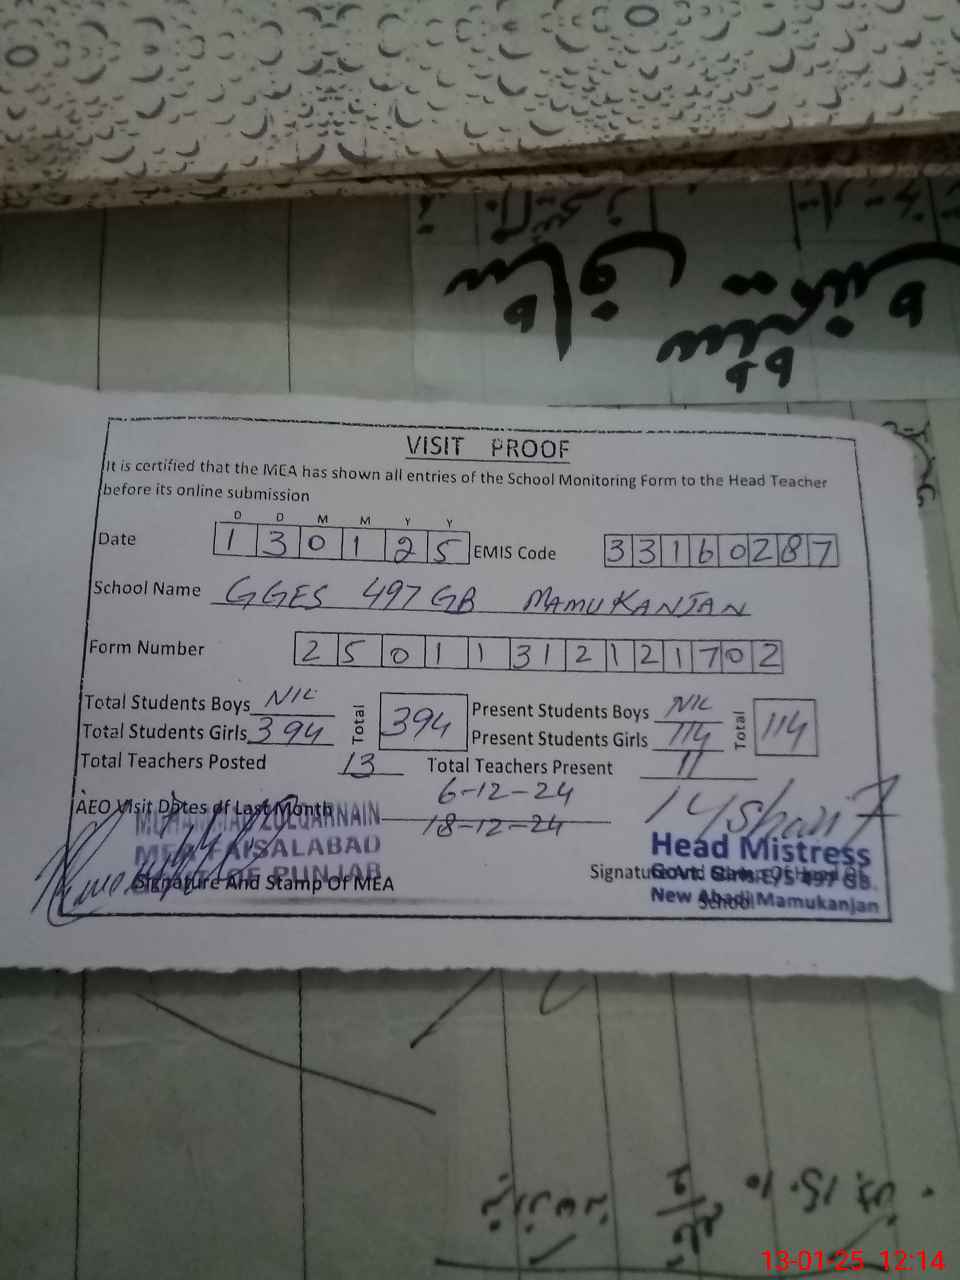 VISIT PROOF
It is certified that the MEA has shown all entries of the School Monitoring Form to the Head Teacher
before its online submission
D D M M Y Y
Date 1 3 0 1 2 5 EMIS Code 3 3 1 6 0 2 8 7
School Name GGES 497 GB MAMUKANJAN
Form Number 2 5 0 1 1 3 1 2 1 2 1 7 0 2
Total Students Boys NIL Total 394 Present Students Boys NIL Total 114
Total Students Girls 394 Present Students Girls 114
Total Teachers Posted 13 Total Teachers Present 11
AEO Visit Dates of Last Month 6-12-24
18-12-24
MUHAMMAD ZULQARNAIN
MEA FAISALABAD
GOVT OF PUNJAB
Signature And Stamp Of MEA
Head Mistress
Govt. Girls E/S 497 GB.
New Abadi Mamukanjan
Signature And Stamp Of Head Of
School
13-01-25 12:14